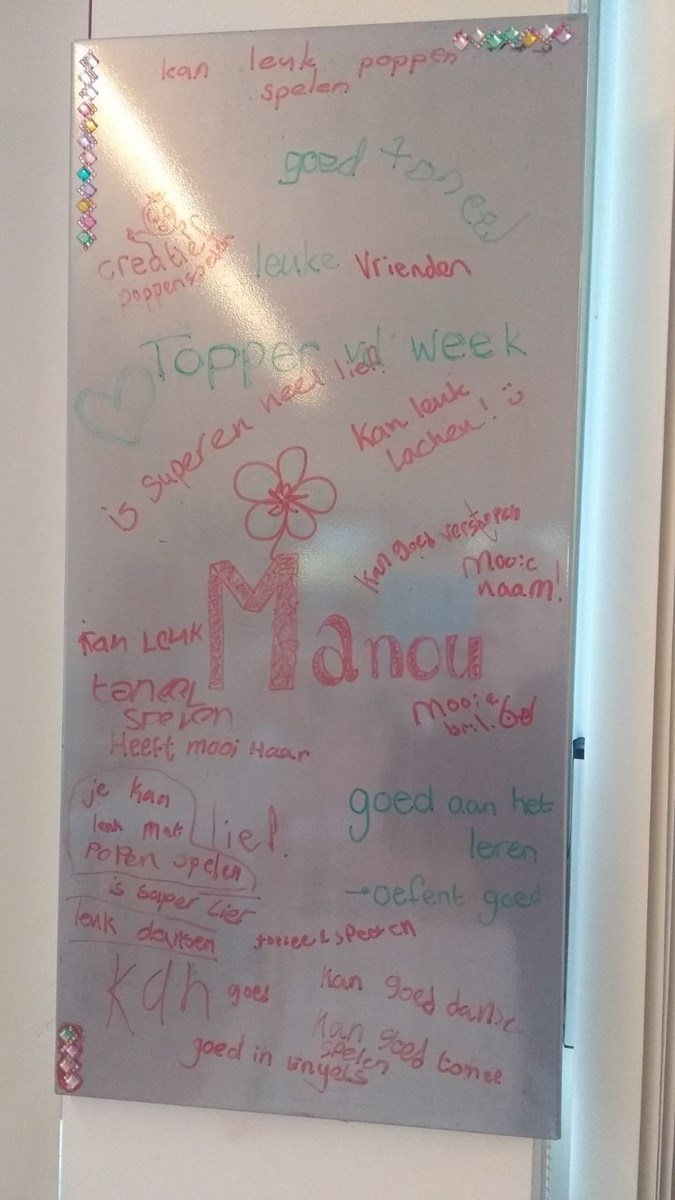 kan leuk poppen
spelen
goed toneel
creatief
poppenspelen
leuke vrienden
Topper vd week
is super en heel lief!
Kan leuk
lachen! :)
Kan goed verstoppen
Mooie
naam!
Manou
Kan Leuk
toneel
speren
Heeft mooi Haar
Mooie
bril.
je kan
leuk met
Popen spelen
lief.
goed aan het
leren
→oefent goed
is super Lief
leuk dansen
Kan goed
kan goed danse
kan goed tonee
spelen
goed in Engels